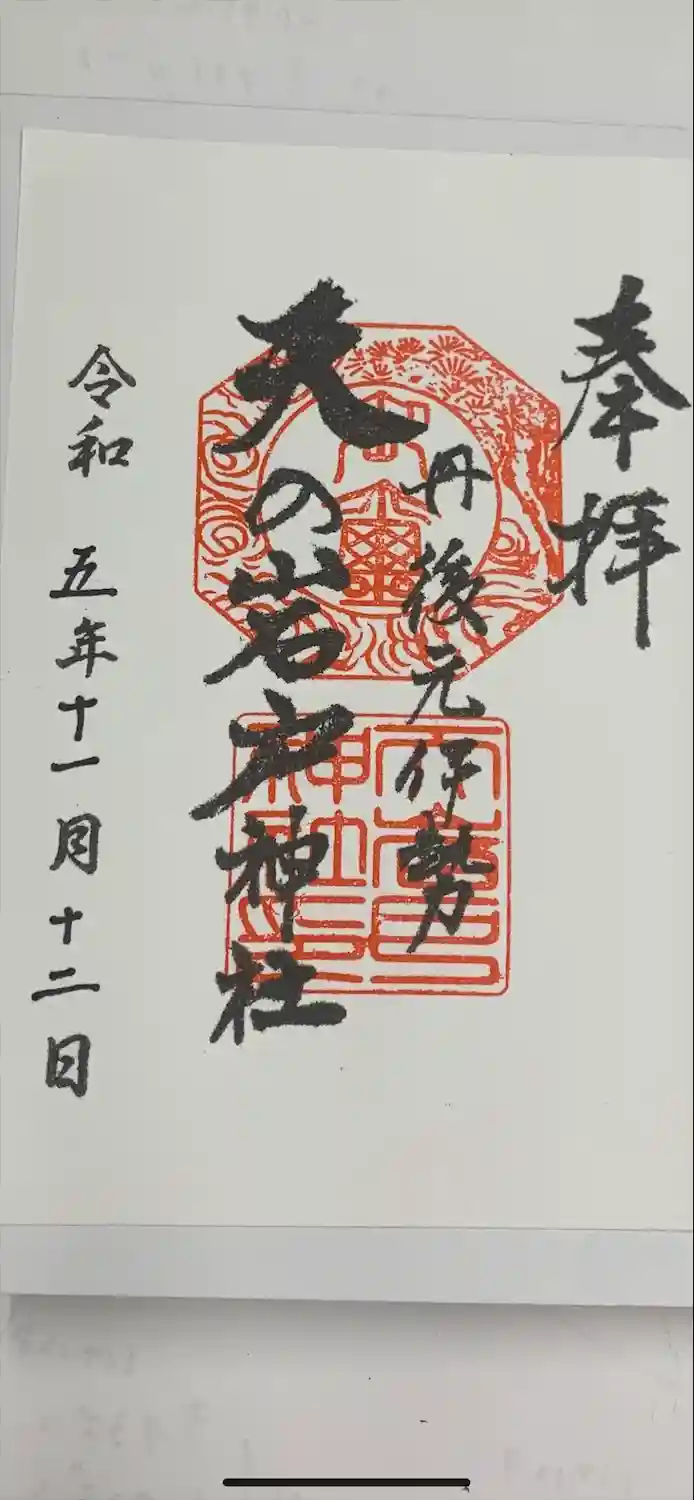 奉拝
丹後元伊勢
天の岩戸神社
令和 五年十一月十二日